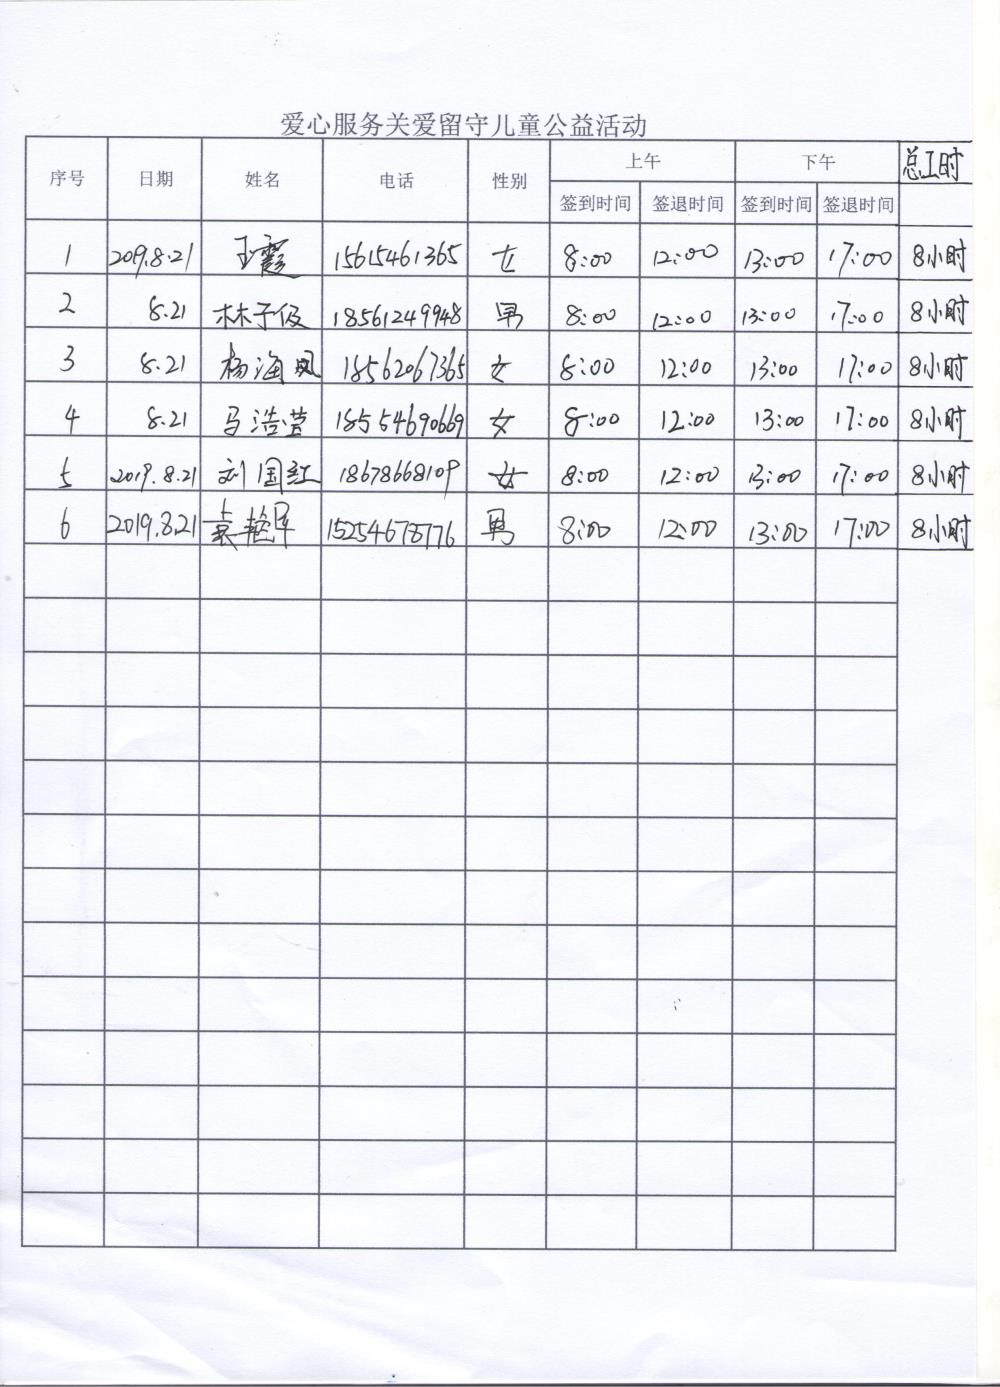 爱心服务关爱留守儿童公益活动
序号 日期 姓名 电话 性别 上午 下午 总工时
签到时间 签退时间 签到时间 签退时间
1 2019.8.21 王霞 15615461365 女 8:00 12:00 13:00 17:00 8小时
2 8.21 林子俊 18561249948 男 8:00 12:00 13:00 17:00 8小时
3 8.21 杨海凤 18562067365 女 8:00 12:00 13:00 17:00 8小时
4 8.21 马浩萱 18554690669 女 8:00 12:00 13:00 17:00 8小时
5 2019.8.21 刘国红 18678668109 女 8:00 12:00 13:00 17:00 8小时
6 2019.8.21 袁艳军 15254678776 男 8:00 12:00 13:00 17:00 8小时